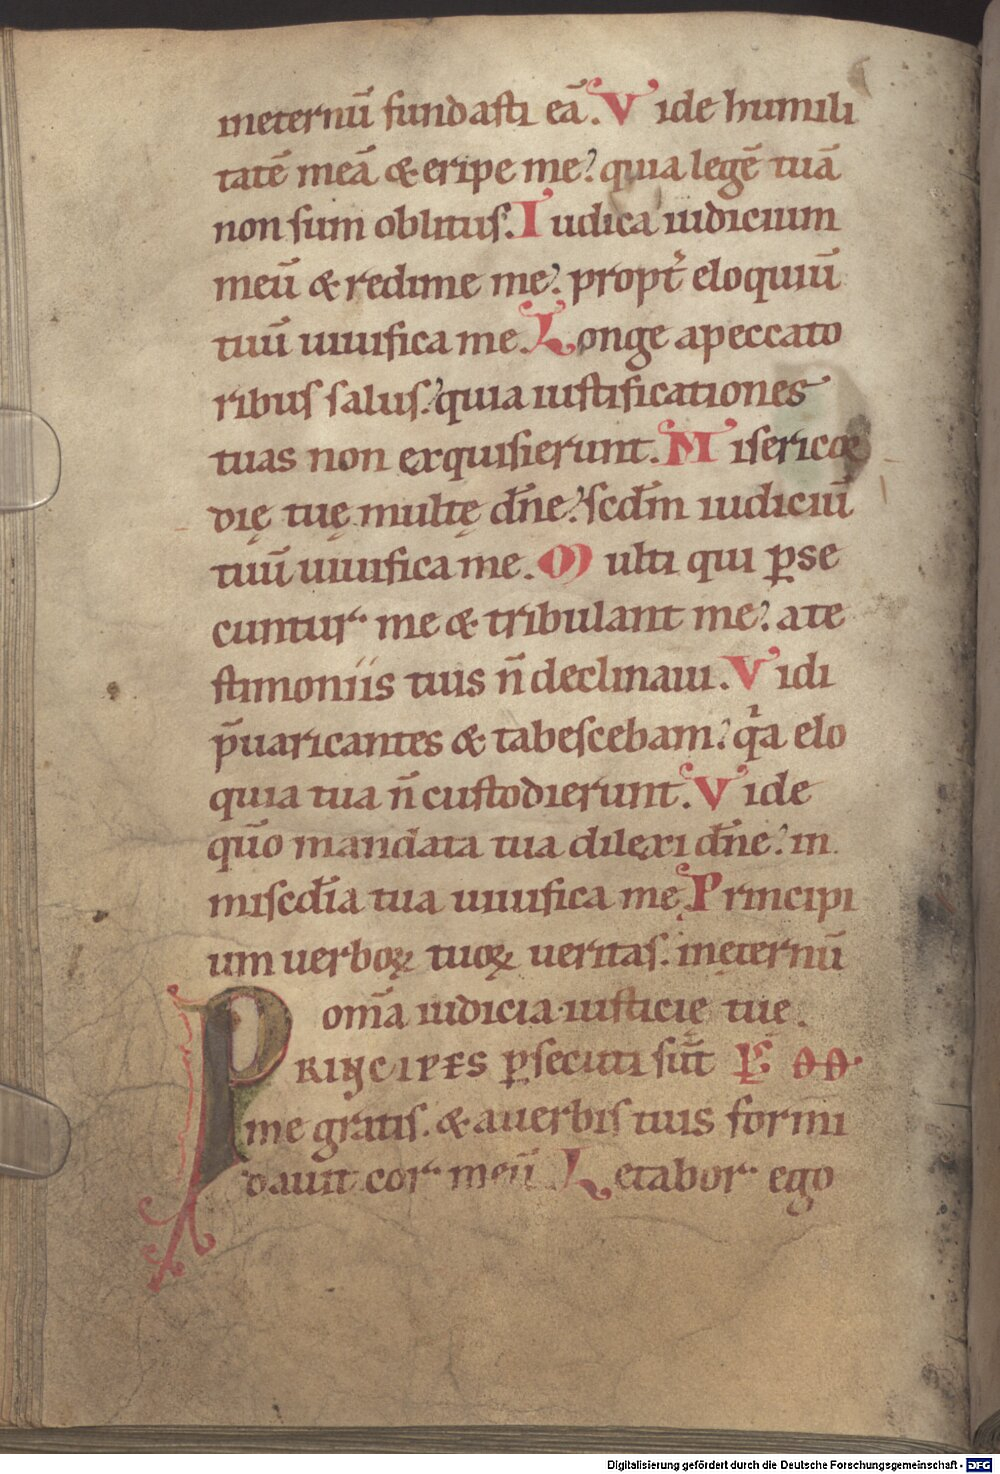 ineternū fundasti eā. Vide humili
tatē meā & eripe me? quia legē tuā
non sum oblitus. Iudica iudicium
meū & redime me? propt̉ eloquiū
tuū uiuifica me. Longe apeccato
ribus salus? quia iustificationes
tuas non exquisierunt. Miserico
dię tuę multę dn̄e? scd̄m iudiciū
tuū uiuifica me. Multi qui ꝑse
cuntur me & tribulant me? ate
stimoniis tuis n̄ declinaui. Vidi
p̄uaricantes & tabescebam? qͥa elo
quia tua n̄ custodierunt. Vide
qūo mandata tua dilexi dn̄e? in
miscd̄ia tua uiuifica me. Principi
um uerboꝝ tuoꝝ ueritas. inęternū
om̄a iudicia iusticię tue.
PRINCIPES ꝑsecuti sūt
me gratis. & auerbis tuis formi
dauit cor meū. Letabor ego
Digitalisierung gefördert durch die Deutsche Forschungsgemeinschaft - DFG